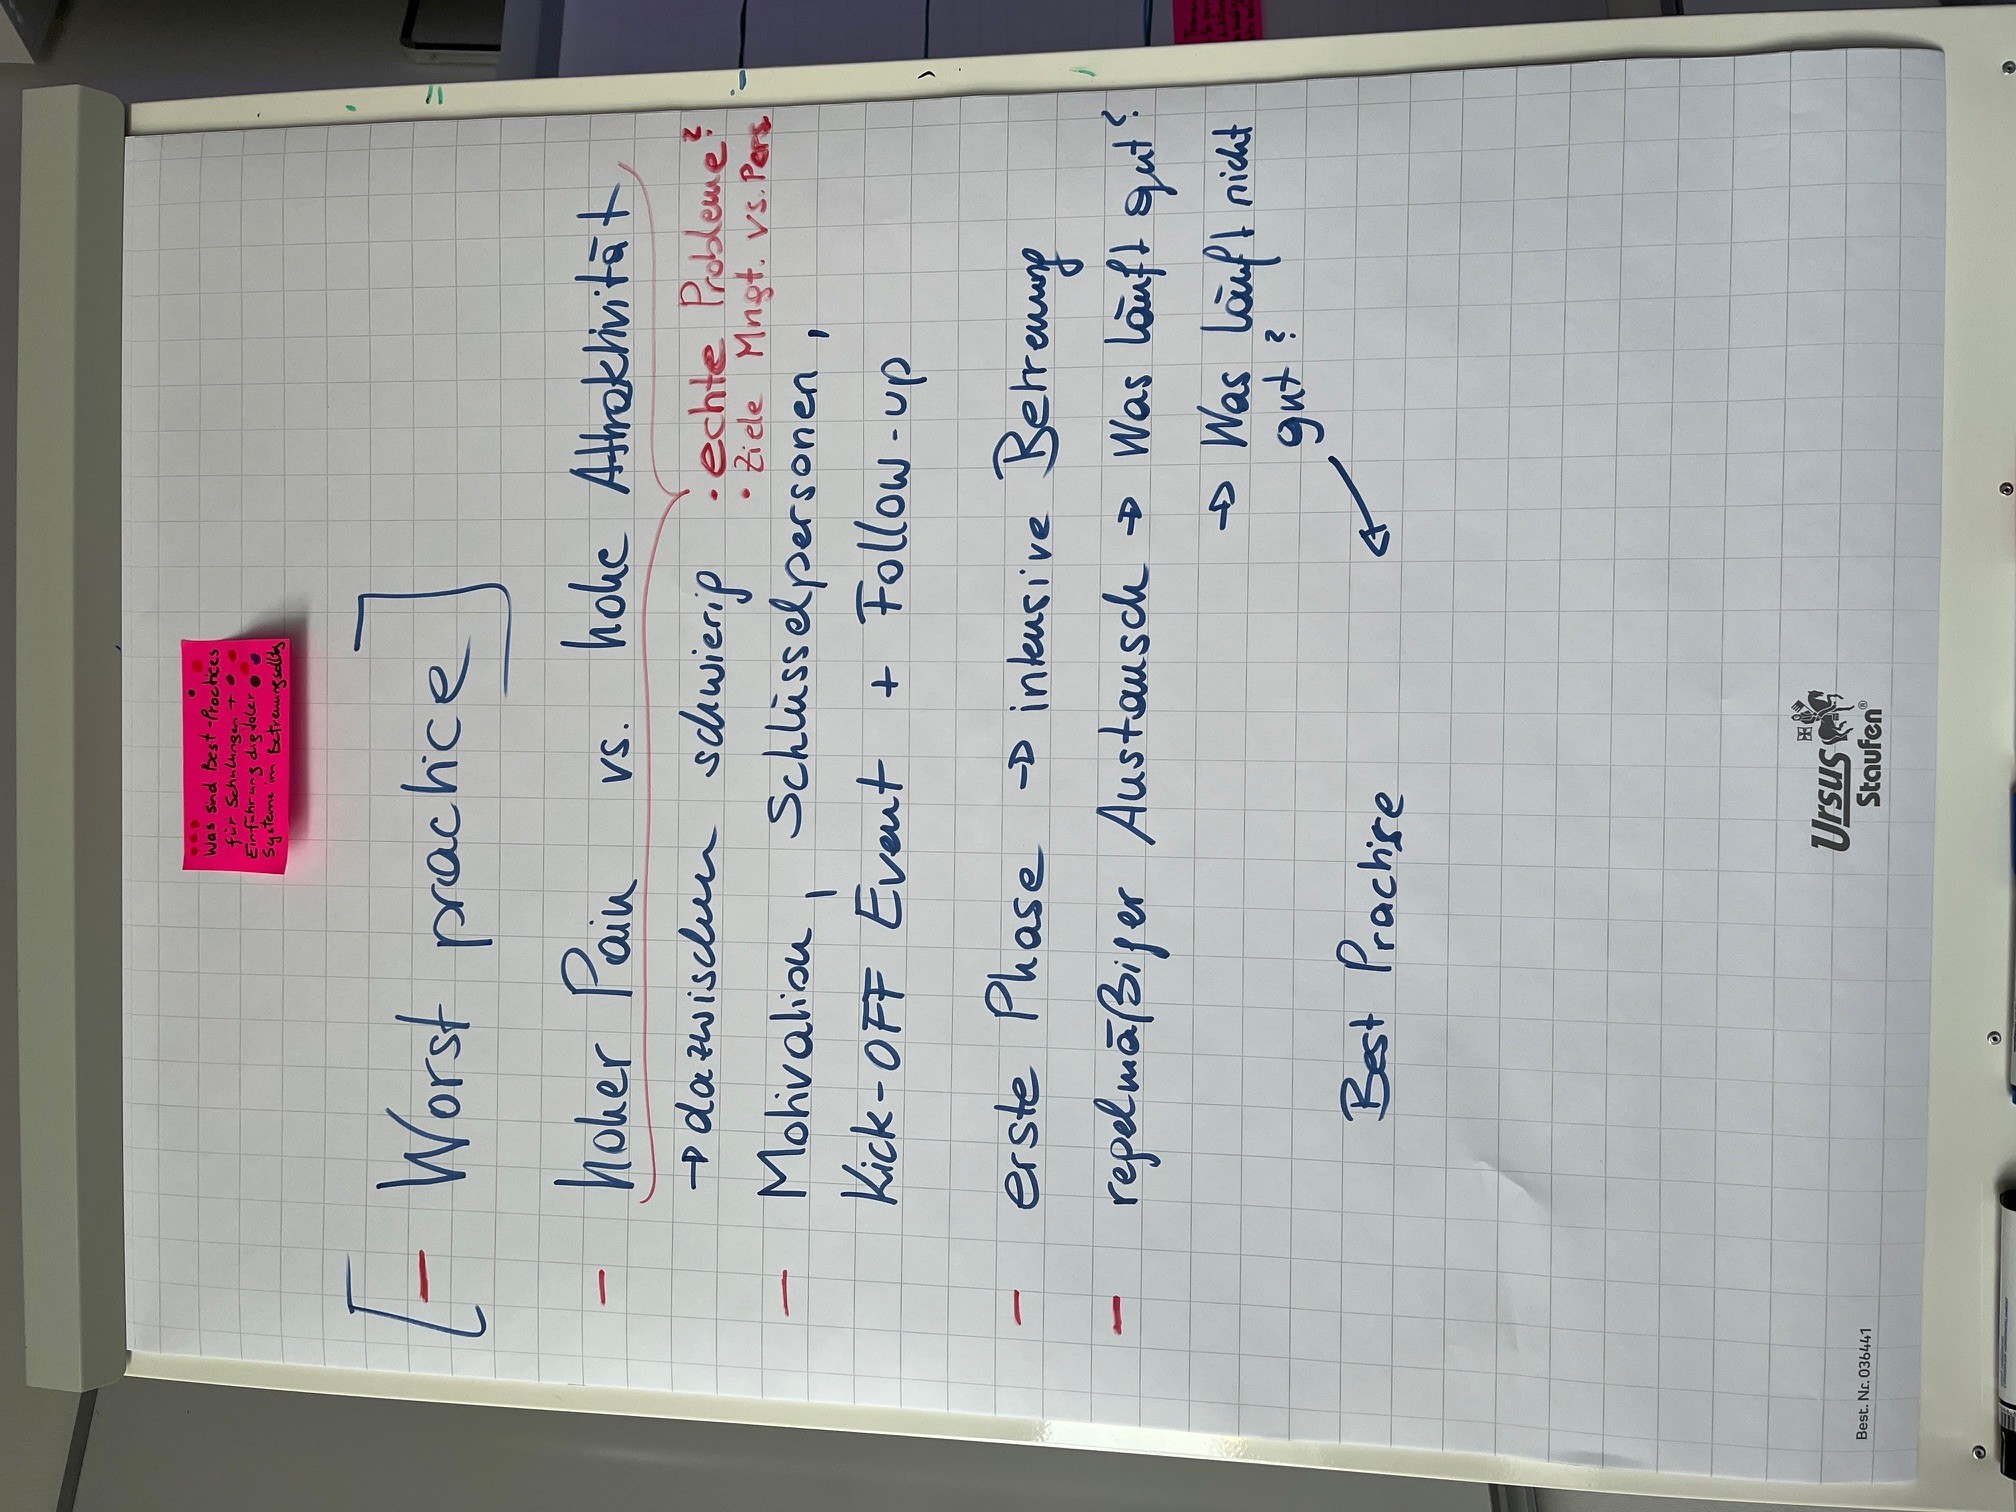 Was sind Best-Practices
für Schulungen +
Einführung digitaler
Systeme im Betreuungsalltag
[- Worst practice]
- hoher Pain vs. hohe Attraktivität
→ dazwischen schwierig
• echte Probleme?
• Ziele Mngt. vs. Pers.
- Motivation, Schlüsselpersonen,
Kick-OFF Event + Follow-up
- erste Phase → intensive Betreuung
- regelmäßiger Austausch → Was läuft gut?
→ Was läuft nicht
gut?
Best Practise
Ursus®
Staufen
Best. Nr. 036441